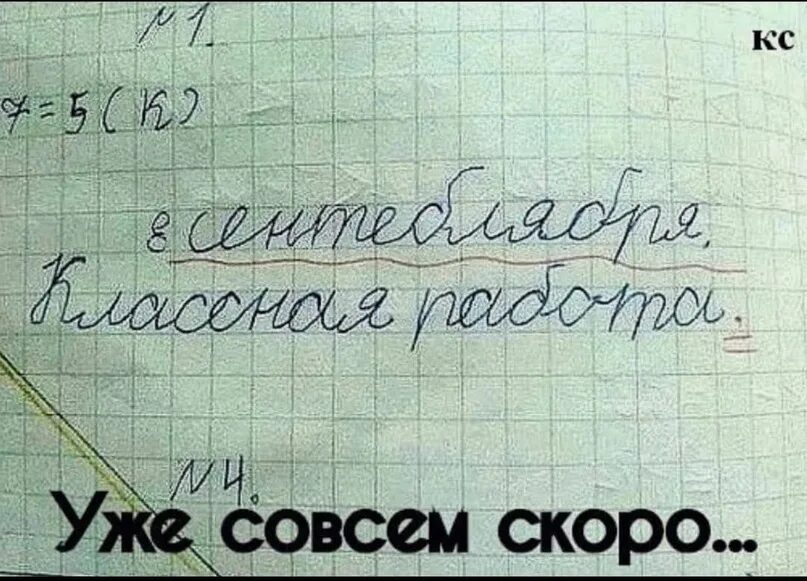 №1.
кс
7=5(К)
8 сентеблября.
Классная работа.
№4.
Уже совсем скоро...